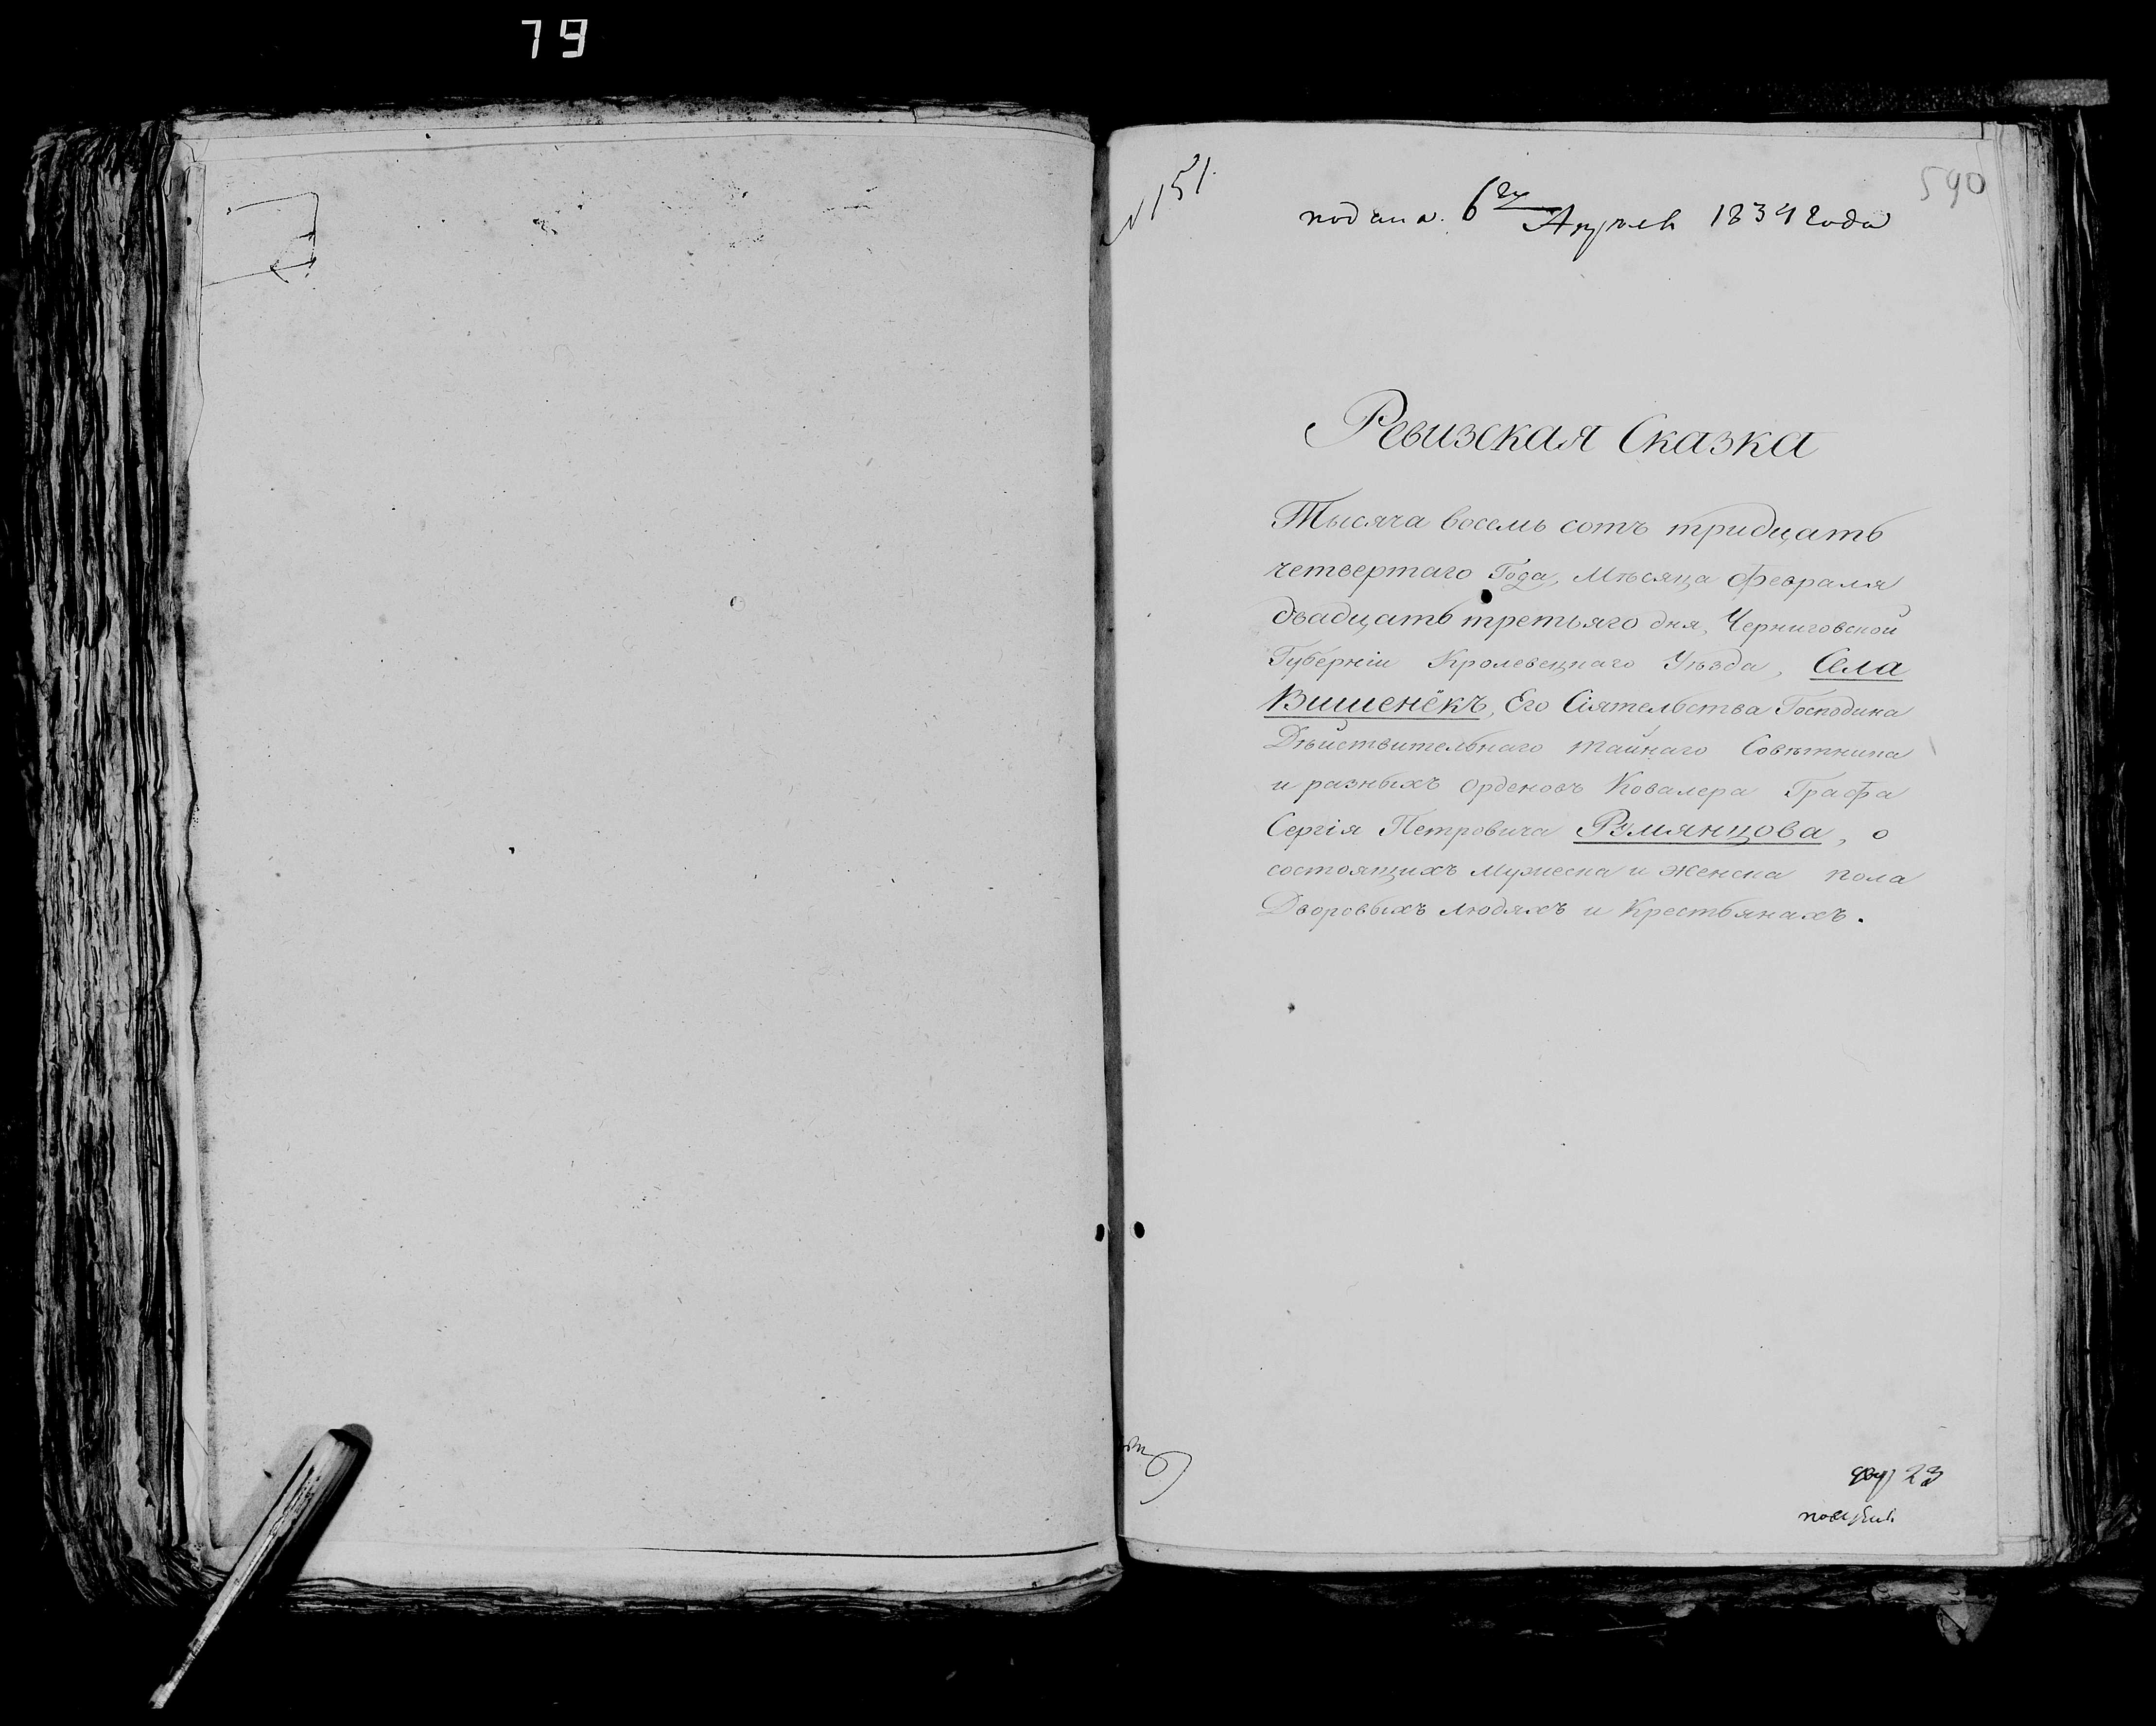 79
N 151.
590
подана 6го Апреля 1834 года
Ревизская Сказка
Тысяча восемь сотъ тридцать
четвертаго Года, Мѣсяца февраля
двадцать третьяго дня, Черниговской
Губерніи Кролевецкаго Уѣзда, Села
Вишенёкъ, Его Сіятельства Господина
Дѣйствительнаго тайнаго Совѣтника
и разныхъ Орденовъ Ковалера Графа
Сергія Петровича Румянцова, о
состоящихъ мужеска и женска пола
Дворовыхъ людяхъ и Крестьянахъ.
23